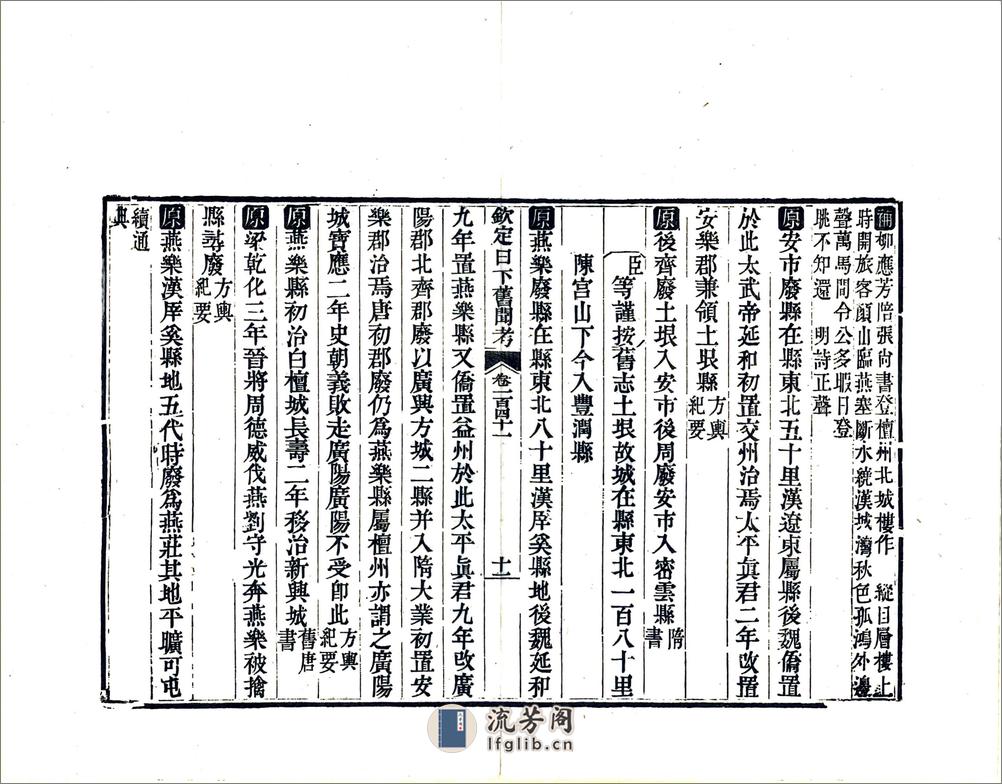 補柳應芳陪張尚書登檀州北城樓作　縱目層樓上
時開旅客顏山臨燕塞斷水繞漢城灣秋色孤鴻外邊
聲萬馬間今公多暇日登
眺不知還　明詩正聲
原安市廢縣在縣東北五十里漢遼東屬縣後魏僑置
於此太武帝延和初置交州治焉太平眞君二年改置
安樂郡兼領土垠縣方輿
紀要
原後齊廢土垠入安市後周廢安市入密雲縣隋
書
臣等謹按舊志土垠故城在縣東北一百八十里
陳宮山下今入豐潤縣
原燕樂廢縣在縣東北八十里漢厗奚縣地後魏延和
欽定日下舊聞考　卷一百四十一　十一
九年置燕樂縣又僑置益州於此太平眞君九年改廣
陽郡北齊郡廢以廣興方城二縣并入隋大業初置安
樂郡治焉唐初郡廢仍為燕樂縣屬檀州亦謂之廣陽
城寶應二年史朝義敗走廣陽廣陽不受即此方輿
紀要
原燕樂縣初治白檀城長壽二年移治新興城舊唐
書
原梁乾化三年晉將周德威伐燕劉守光奔燕樂被擒
縣尋廢方輿
紀要
原燕樂漢厗奚縣地五代時廢為燕莊其地平曠可屯
續通
典
流芳阁
lfglib.cn